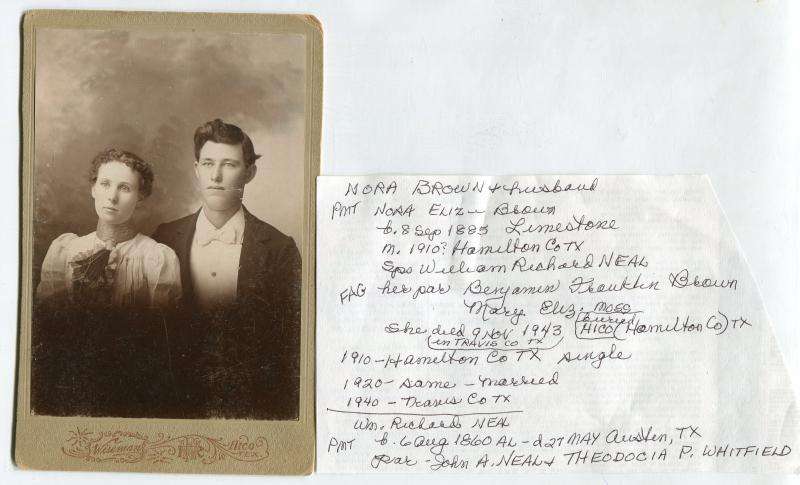 NORA BROWN & husband
PMT NORA ELIZ - Brown
b. 8 Sep 1883 Limestone
m. 1910? Hamilton Co TX
Sps William Richard NEAL
FAG her par Benjamin Franklin Brown
Mary Eliz. MOSS
She died 9 NOV 1943 buried HICO (Hamilton Co) TX
(in TRAVIS CO TX)
1910 - Hamilton Co TX single
1920 - same - married
1940 - Travis Co TX
Wm. Richard NEAL
PMT b. 6 Aug 1860 AL - d 27 MAY Austin, TX
Par - John A. NEAL & THEODOCIA P. WHITFIELD
Wiseman
Hico
TEX.